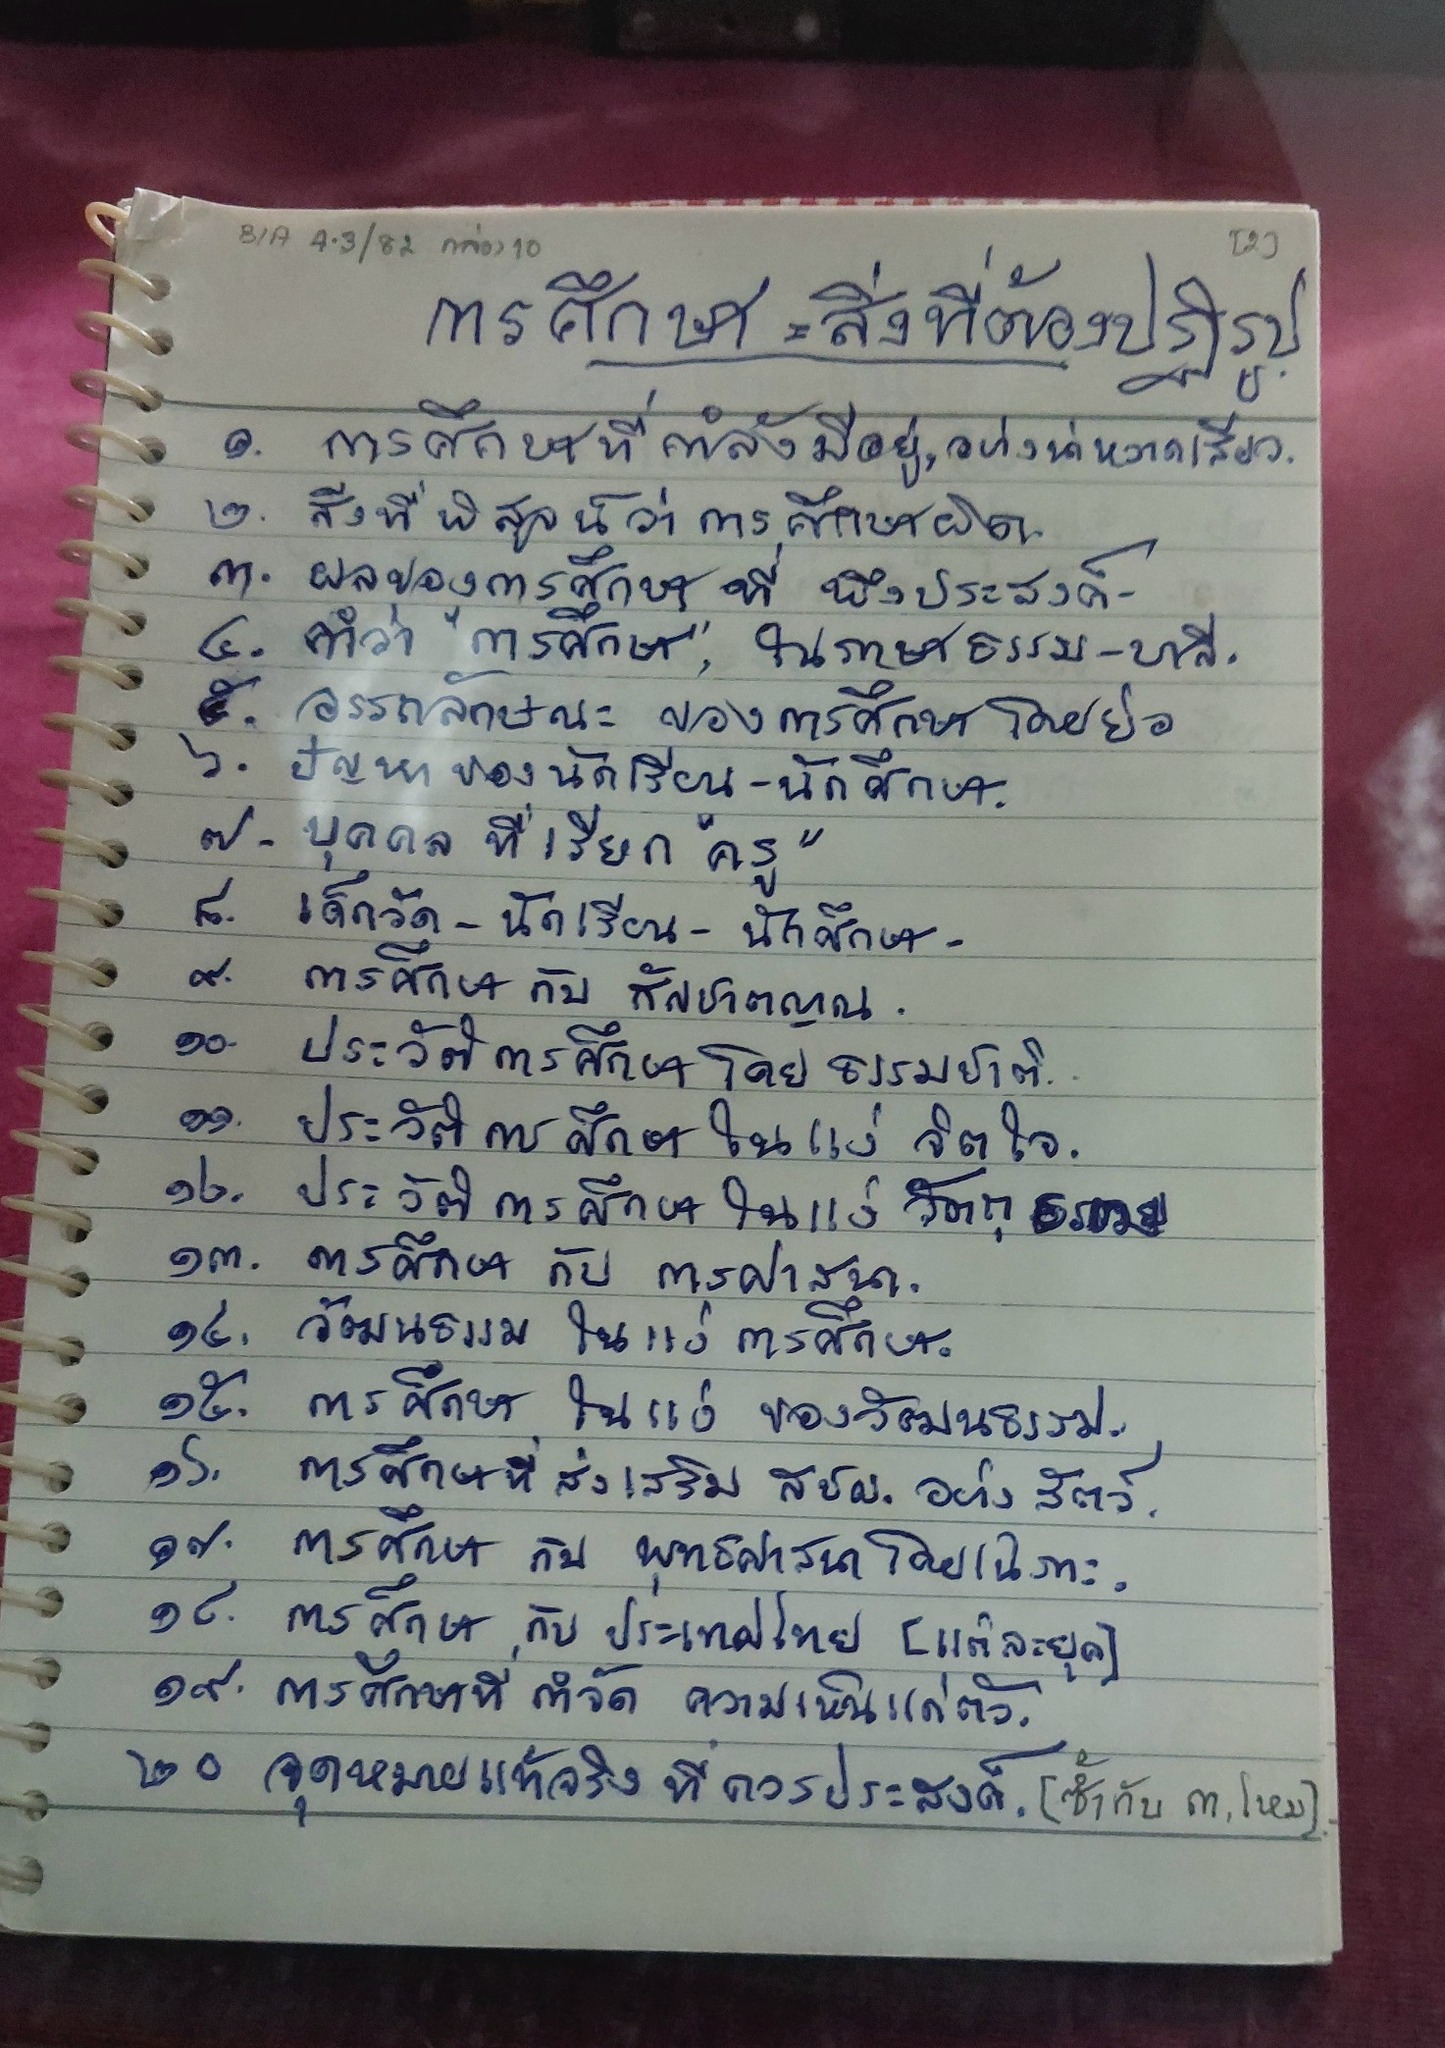 BIA 4.3/82 กล่อง 10 [2]
การศึกษา = สิ่งที่ต้องปฏิรูป
๑. การศึกษาที่กำลังมีอยู่, อย่างน่าหวาดเสียว.
๒. สิ่งที่พิสูจน์ว่าการศึกษาผิด.
๓. ผลของการศึกษา ที่ พึงประสงค์-
๔. คำว่า "การศึกษา", ในภาษาธรรม-บาลี.
๕. อรรถลักษณะ ของการศึกษาโดยย่อ
๖. ปัญหาของนักเรียน-นักศึกษา.
๗- บุคคล ที่เรียก "ครู"
๘. เด็กวัด - นักเรียน - นักศึกษา -
๙. การศึกษา กับ สัญชาตญาณ.
๑๐. ประวัติการศึกษาโดย ธรรมชาติ.
๑๑. ประวัติการศึกษาในแง่ จิตใจ.
๑๒. ประวัติการศึกษาในแง่ วัตถุ
๑๓. การศึกษา กับ การศาสนา.
๑๔. วัฒนธรรม ในแง่ การศึกษา.
๑๕. การศึกษา ในแง่ ของวัฒนธรรม.
๑๖. การศึกษาที่ส่งเสริม สชฌ. อย่าง สัตว์.
๑๗. การศึกษา กับ พุทธศาสนาโดยเฉพาะ.
๑๘. การศึกษา กับ ประเทศไทย [แต่ละยุค]
๑๙. การศึกษาที่ กำจัด ความเห็นแก่ตัว.
๒๐ จุดหมายแท้จริง ที่ควรประสงค์. [ซ้ำกับ ๓, ไหม].